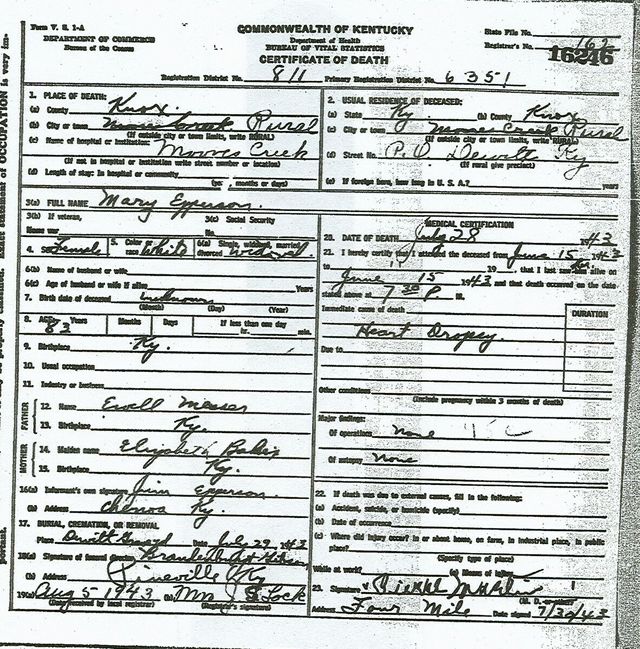 Form V. S. 1-A
DEPARTMENT OF COMMERCE
Bureau of the Census
COMMONWEALTH OF KENTUCKY
Department of Health
BUREAU OF VITAL STATISTICS
CERTIFICATE OF DEATH
State File No.
Registrar's No. 162
16246
Registration District No. 811 Primary Registration District No. 6351
1. PLACE OF DEATH:
(a) County Knox
(b) City or town Rural
(If outside city or town limits, write RURAL)
(c) Name of hospital or institution: Moores Creek
(If not in hospital or institution write street number or location)
(d) Length of stay: In hospital or community
(yrs., months or days)
2. USUAL RESIDENCE OF DECEASED:
(a) State Ky (b) County Knox
(c) City or town Moores Creek Rural
(If outside city or town limits, write RURAL)
(d) Street No. P.O. Dewitt Ky
(If rural give precinct)
(e) If foreign born, how long in U. S. A.? years
3(a) FULL NAME Mary Epperson
3(b) If veteran,
Name war
3(c) Social Security
No.
4. Sex Female 5. Color or race White 6(a) Single, widowed, married, divorced Widowed
6(b) Name of husband or wife
6(c) Age of husband or wife if alive Years
7. Birth date of deceased unknown
(Month) (Day) (Year)
8. AGE: Years Months Days If less than one day
83 hr. min.
9. Birthplace Ky.
10. Usual occupation
11. Industry or business
FATHER
12. Name Ewell Messer
13. Birthplace Ky.
MOTHER
14. Maiden name Elizabeth
15. Birthplace Ky.
16(a) Informant's own signature Jim Epperson
(b) Address Chenoa Ky.
17. BURIAL, CREMATION, OR REMOVAL
Place Dewitt Date July 29 1943
18(a) Signature of funeral director
(b) Address Pineville Ky
19(a) Aug 5 1943 (b) Mrs J S Lock
(Date received by local registrar) (Registrar's signature)
MEDICAL CERTIFICATION
20. DATE OF DEATH July 28 1943
21. I hereby certify that I attended the deceased from June 15 1943
to 19 that I last saw alive on
June 15 1943 and that death occurred on the date
stated above at 7 30 P. M.
DURATION
Immediate cause of death
Heart Dropsy
Due to
Other conditions
(Include pregnancy within 3 months of death)
Major findings:
Of operations None
Of autopsy None
22. If death was due to external causes, fill in the following:
(a) Accident, suicide, or homicide (specify)
(b) Date of occurrence
(c) Where did injury occur? in or about home, on farm, in industrial place, in public
place?
(Specify type of place)
While at work? (e) Means of injury
23. Signature
Address Four Mile Date signed 7/30/43